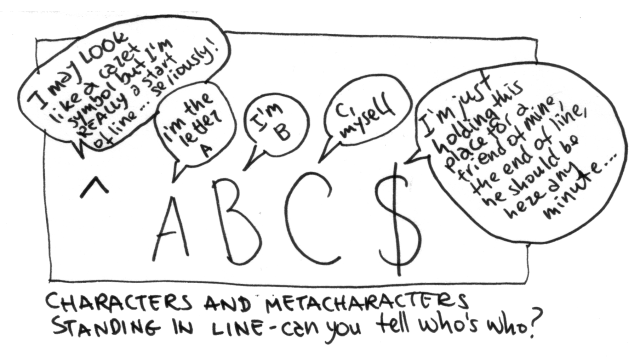 I may LOOK
like a caret
symbol but I'm
REALLY a start
of line... seriously!
i'm the
letter
A
I'm
B
C,
myself
I'm just
holding this
place for a
friend of mine,
the end of line,
he should be
here any
minute...
^ A B C $
CHARACTERS AND METACHARACTERS
STANDING IN LINE - can you tell who's who?